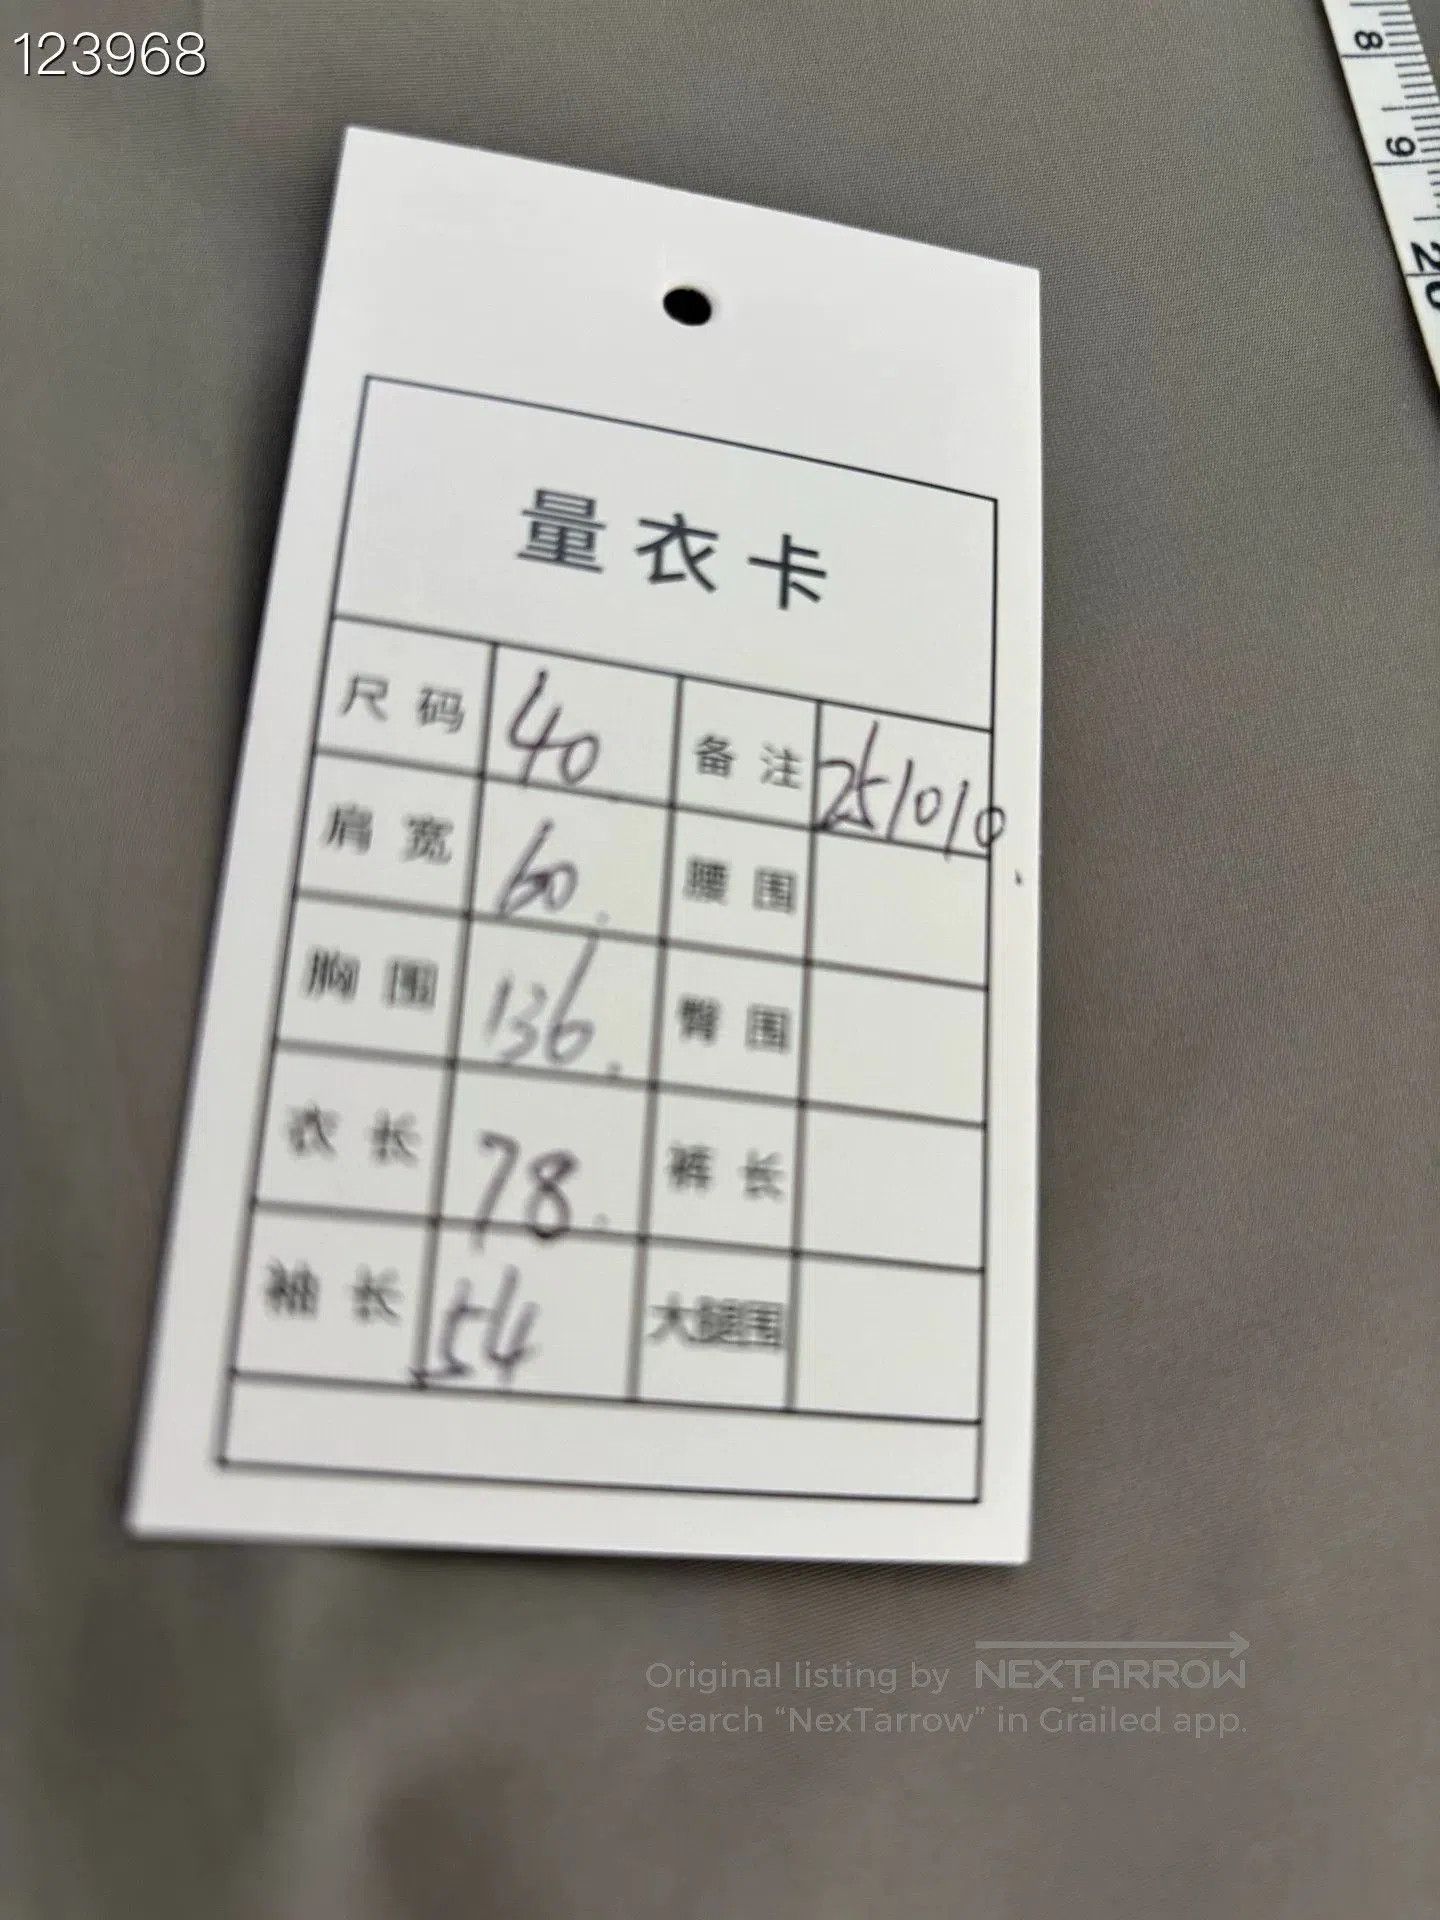 123968
8
9
20
量衣卡
尺码 40 备注 251010
肩宽 60. 腰围
胸围 136. 臀围
衣长 78. 裤长
袖长 54 大腿围
Original listing by NEXTARROW
Search “NexTarrow” in Grailed app.